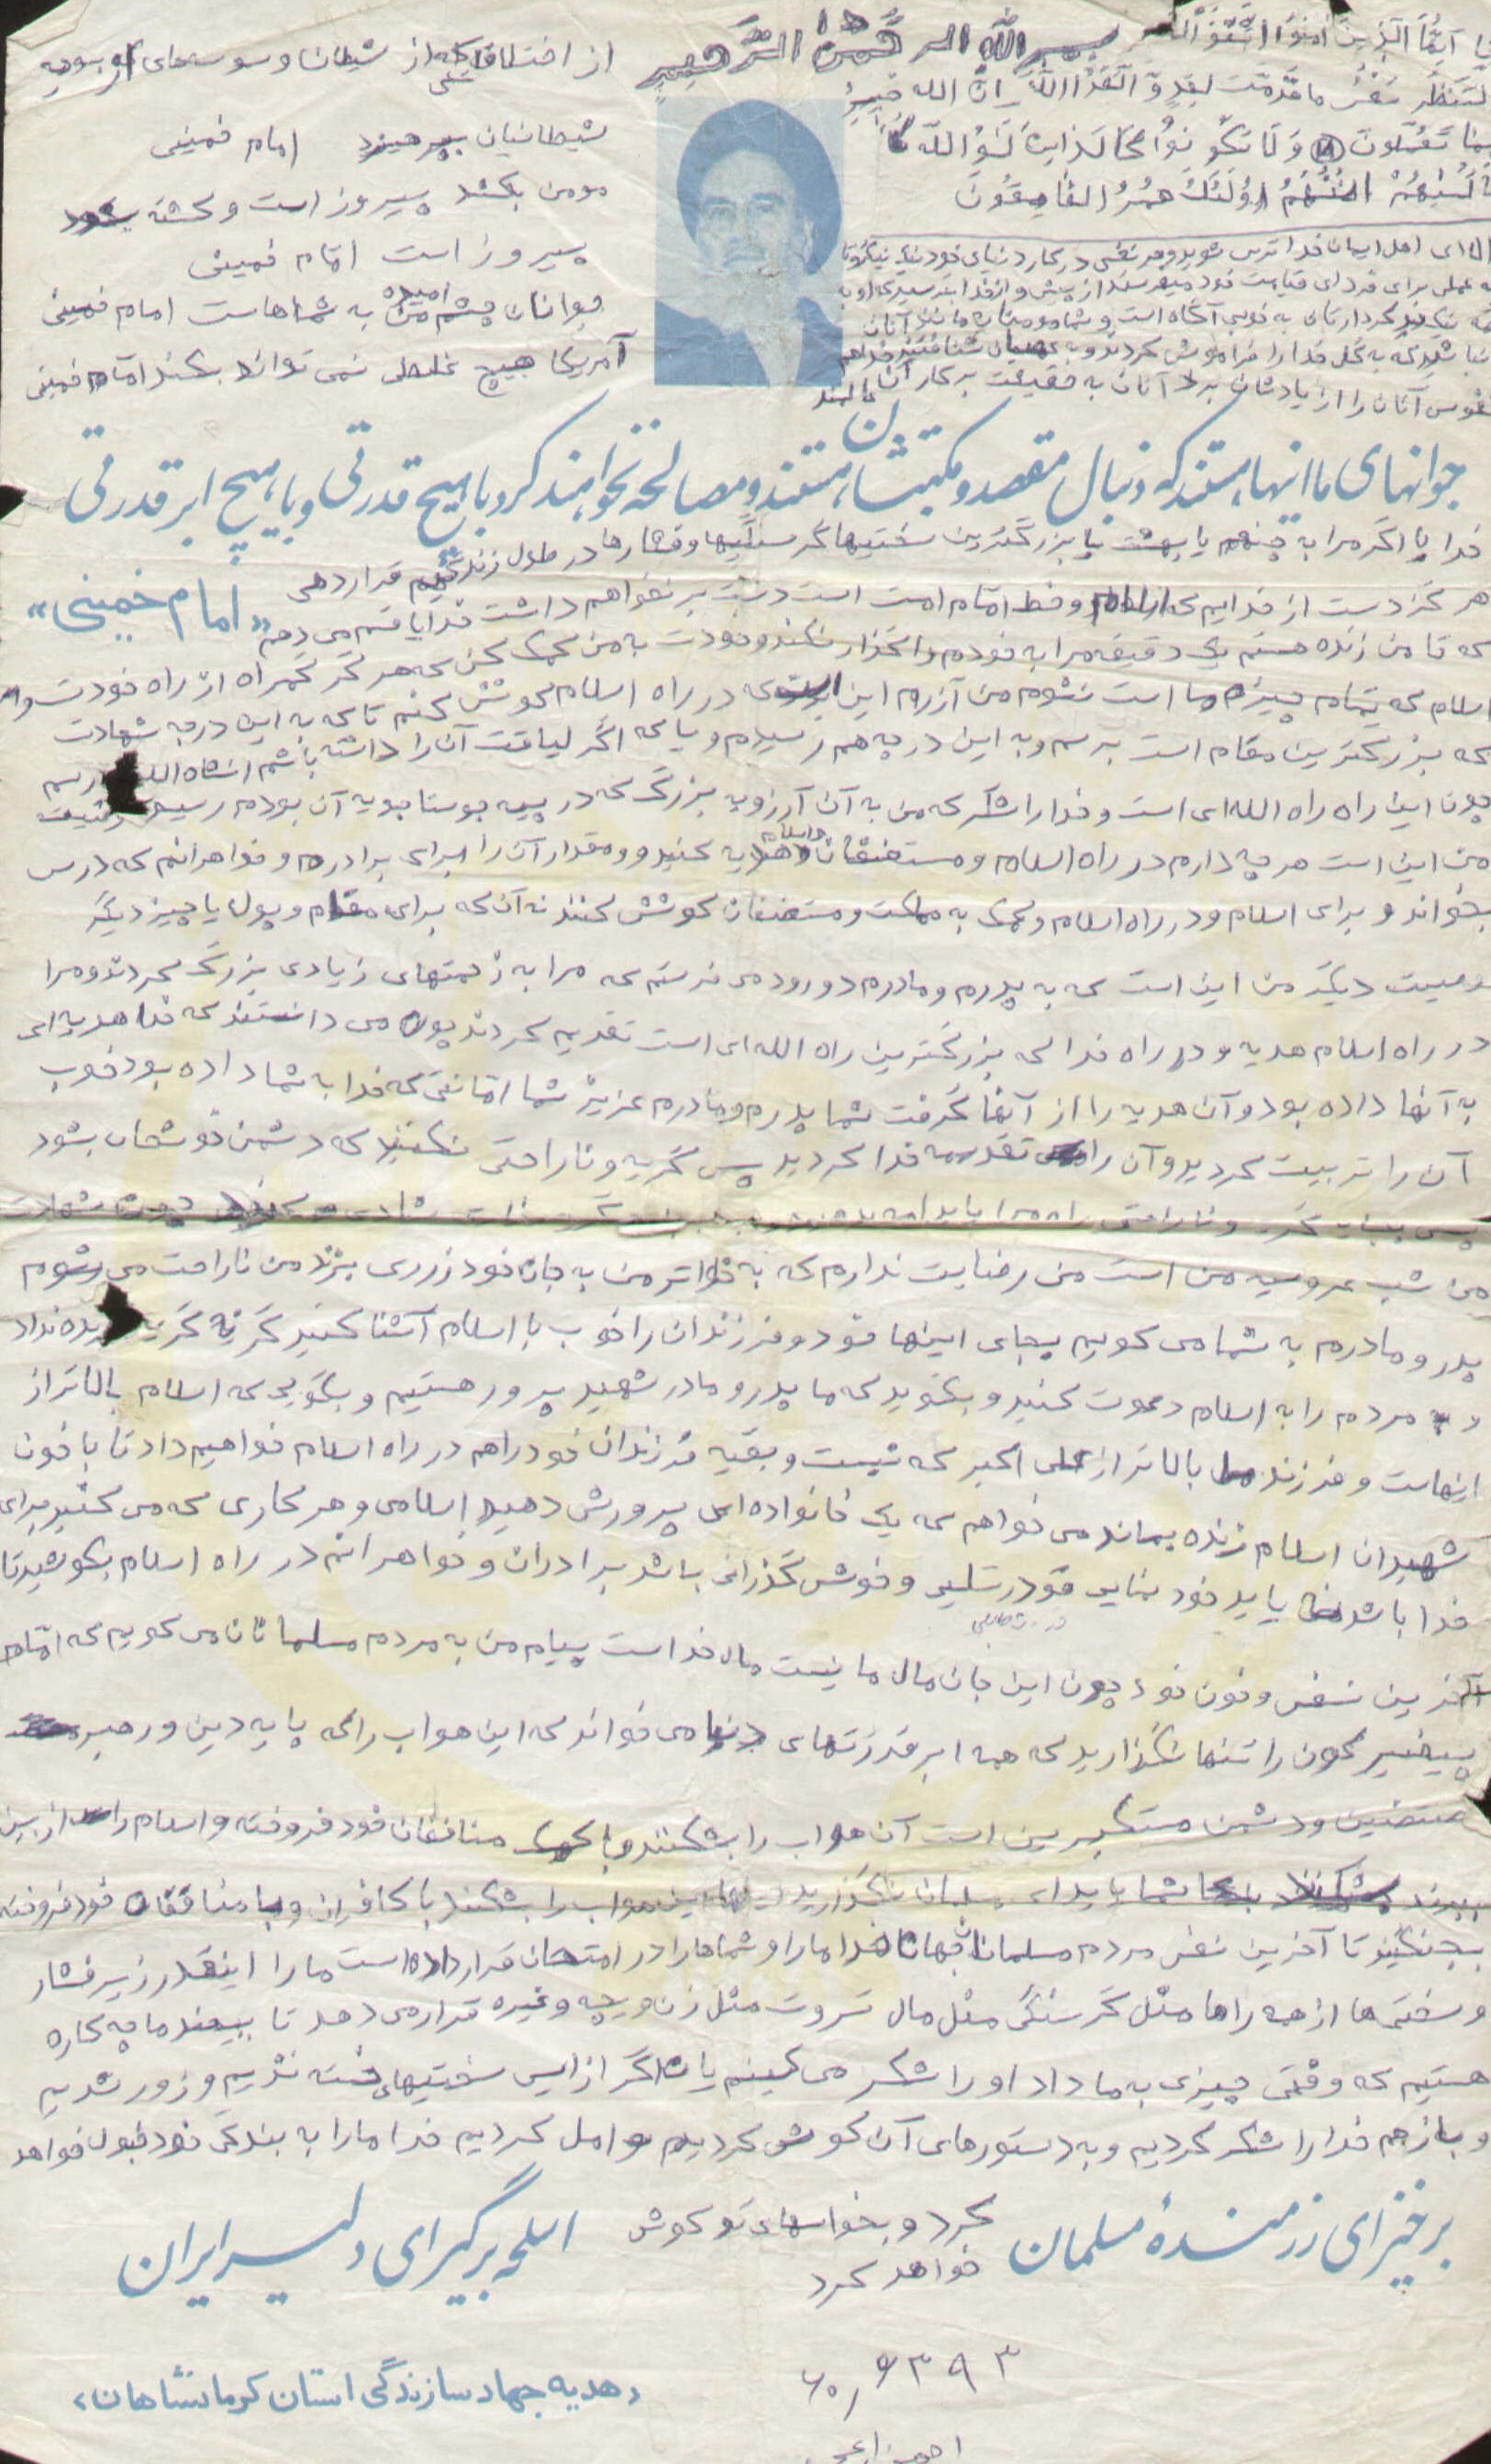 بسم الله الرحمن الرحیم
یا ایها الذین امنوا اتقوالله
لتنظر نفس ما قدمت لغد و اتقوا الله ان الله خبیر
بما تعملون ولا تکونوا کالذین نسوا الله
فانسیهم انفسهم اولئک هم الفاسقون
الا ای اهل ایمان خدا ترس شوید و هر نفسی در کار دنیای خود نیک بنگرد تا
چه عملی برای فردای قیامت خود میفرستد از پیش و از خدا بترسید که او به
کردارتان به خوبی آگاه است و شما مومنان مانند آنان
نباشید که به کل خدا را فراموش کردند
نفوس آنان را از یادشان برد آنان به حقیقت بدکار
از شیطان و وسوسه‌های
شیطانیان بپرهیزید امام خمینی
مومن بکشد پیروز است و کشته شود
پیروز است امام خمینی
جوانان چشم امید من به شماهاست امام خمینی
آمریکا هیچ غلطی نمی تواند بکند امام خمینی
جوانهای ما اینها هستند که دنبال مقصد و مکتبشان هستند و مصالحه نخواهند کرد با هیچ قدرتی و با هیچ ابرقدرتی
«امام خمینی»
خدایا اگر مرا به جهنم یا بهشت یا بزرگترین سختیها گرسنگیها و فشارها در طول زندگیم قرار دهی
هرگز دست از خدایم که و خط امام امت است دست بر نخواهم داشت خدایا قسم می دهم
که تا من زنده هستم یک دقیقه مرا به خودم واگذار نکند و خودت به من کمک کن که هرگز گمراه از راه خودت و
اسلام که تمام چیزها است نشوم من آرزم این است که در راه اسلام کوشش کنم تا که به این درجه شهادت
که بزرگترین مقام است برسم و به این درجه هم رسیدم و یا که اگر لیاقت آن را داشته باشم انشاءالله رسم
چون این راه راه الله ای است و خدا را شکر که من به آن آرزوی بزرگ که در پی جوستا جوی آن بودم رسیدم وصیت
من این است هر چه دارم در راه اسلام و مستضعفان هدیه کنید و مقدار آن را برای برادرم و خواهرانم که درس
بخواند و برای اسلام و در راه اسلام و کمک به مملکت و مستضعفان کوشش کنند نه آن که برای مقام و پول یا چیز دیگر
وصیت دیگر من این است که به پدرم و مادرم دورود می فرستم که مرا به زحمتهای زیادی بزرگ کردند و مرا
در راه اسلام هدیه و در راه خدا که بزرگترین راه الله ای است تقدیم کردند چون می دانستند که خدا هدیه ای
به آنها داده بود و آن هدیه را از آنها گرفت شما پدرم و مادرم عزیز شما امانتی که خدا به شما داده بود خوب
آن را تربیت کردید و آن را تقدیمه خدا کردید پس گریه و ناراحتی نکنید که دشمن خوشحال بشود
من شب عروسیه من است من رضایت ندارم که به خواتر من به جان خود زرری بزند من ناراحت می شوم
پدر و مادرم به شما می گویم بجای اینها خود و فرزندان را خوب با اسلام آشنا کنید گرنه گریه فایده ندارد
و به مردم را به اسلام دعوت کنید و بگوید که ما پدر و مادر شهید پرور هستیم و بگوید که اسلام بالاتر از
اینهاست و فرزند ما بالاتر از علی اکبر که نیست و بقیه فرزندان خود را هم در راه اسلام خواهیم داد تا با خون
شهیدان اسلام زنده بماند می خواهم که یک خانواده ای پرورش دهید اسلامی و هر کاری که می کنید برای
خدا باشد نباید خود نمایی خود و خوش گذرانی باشد برادران و خواهرانم در راه اسلام بکوشید تا
آخرین نفس و خون خود چون این جان مال ما نیست مال خداست پیام من به مردم مسلمانان می گویم که امام
پیغمبر گون را تنها نگذارید که همه ابر قدرتهای دنیا می خواند که این هواب را که پایه دین و رهبر
مستضعفین و دشمن مستکبرین است آن هواب را بشکنند و با کمک منافقان خود فروخته و اسلام را از بین
ببرند شما باید ای مسلمان نگذارید این هواب را بشکند با کافران و با منافقان خود فروخته
بجنگید تا آخرین نفس مردم مسلمان جهان خدا ما را و شماها را در امتحان قرار داده است ما را اینقدر زیر فشار
و سختی ها از همه راها مثل گرسنگی مثل مال ثروت مثل زن و بچه و غیره قرار می دهد تا ببیند ما چه کاره
هستیم که وقتی چیزی به ما داد او را شکر می کنیم یا نه اگر از این سختیهای خسته نشدیم و زور شدیم
و باز هم خدا را شکر کردیم و به دستورهای آن گوش کردیم و امل کردیم خدا ما را به بندگی خود قبول خواهد
کرد و بخواسهای تو گوش
خواهد کرد
برخیز ای رزمندهٔ مسلمان
اسلحه برگیر ای دلیر ایران
«هدیه جهاد سازندگی استان کرمانشاهان»